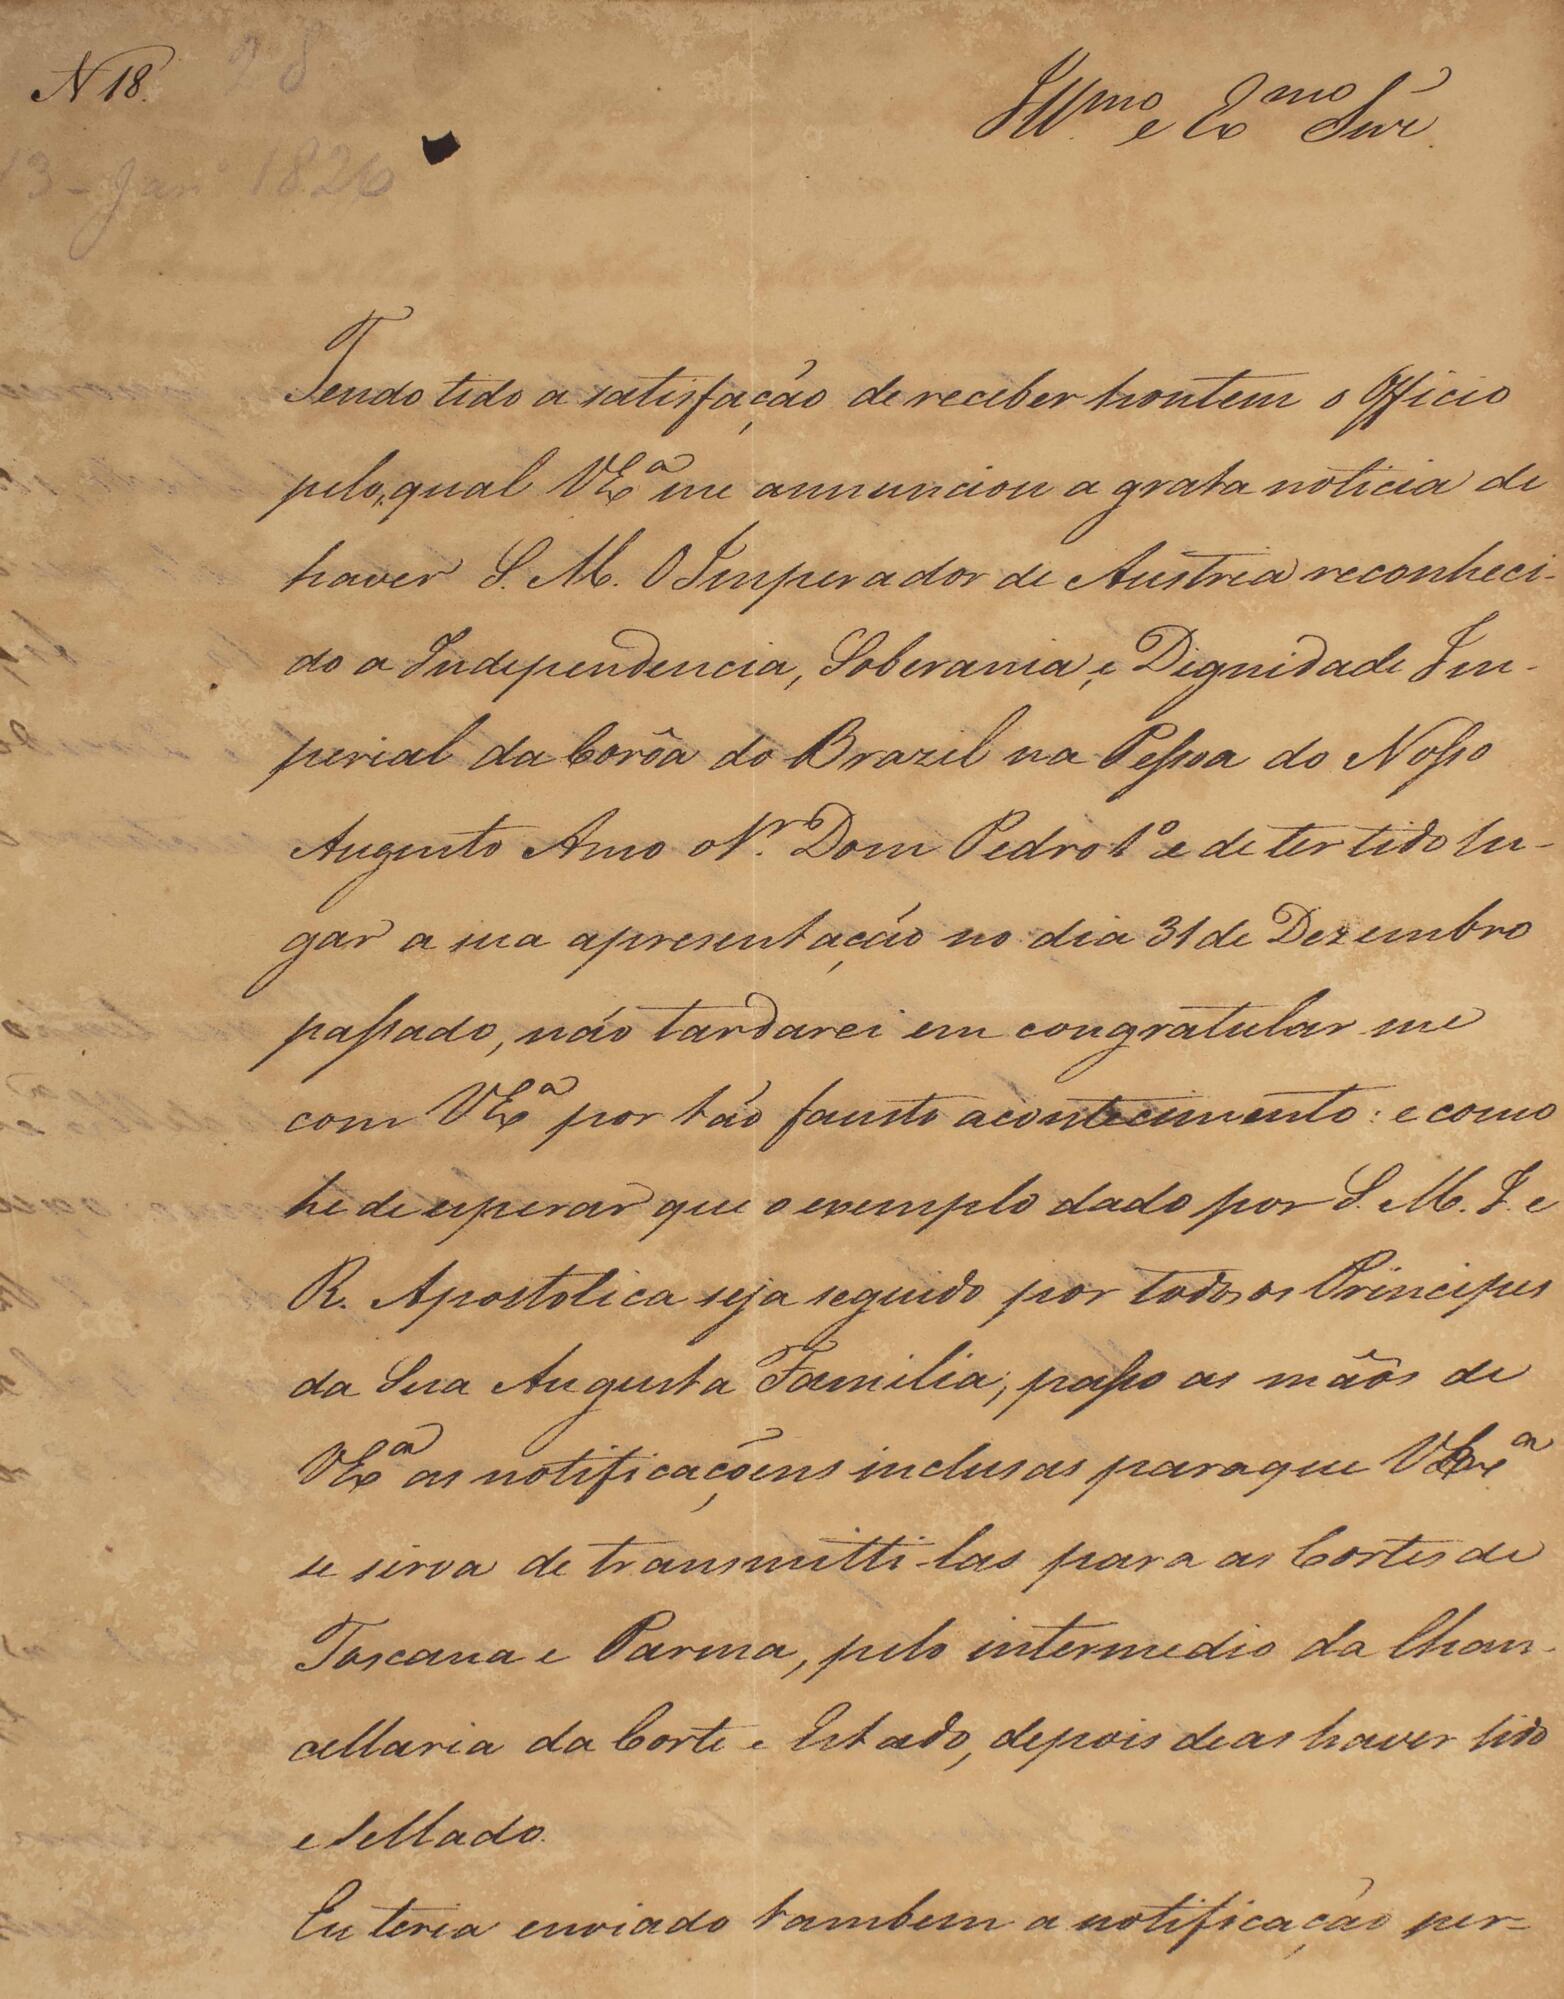 N 18.
28
13 - Jan.º 1826
Ill.mo e Ex.mo Snr.
Tendo tido a satisfação de receber hontem o Officio
pelo qual V Ex.ª me annunciou a grata noticia de
haver S. M. O Imperador de Austria reconheci-
do a Independencia, Soberania, e Dignidade Im-
perial da Corôa do Brazil na Pessoa do Nosso
Augusto Amo o Sr. Dom Pedro 1º e de ter tido lu-
gar a sua apresentação no dia 31 de Dezembro
passado, não tardarei em congratular me
com V Ex.ª por tão fausto acontecimento: e como
he de esperar que o exemplo dado por S. M. I. e
R. Apostolica seja seguido por todos os Principes
da Sua Augusta Familia, passo as mãos de
V Ex.ª as notificaçoens inclusas para que V Ex.ª
se sirva de transmitti-las para as Cortes de
Toscana e Parma, pelo intermedio da Chan-
cellaria da Corte e Estado, depois de as haver lido
e sellado.
Eu teria enviado tambem a notificação per-